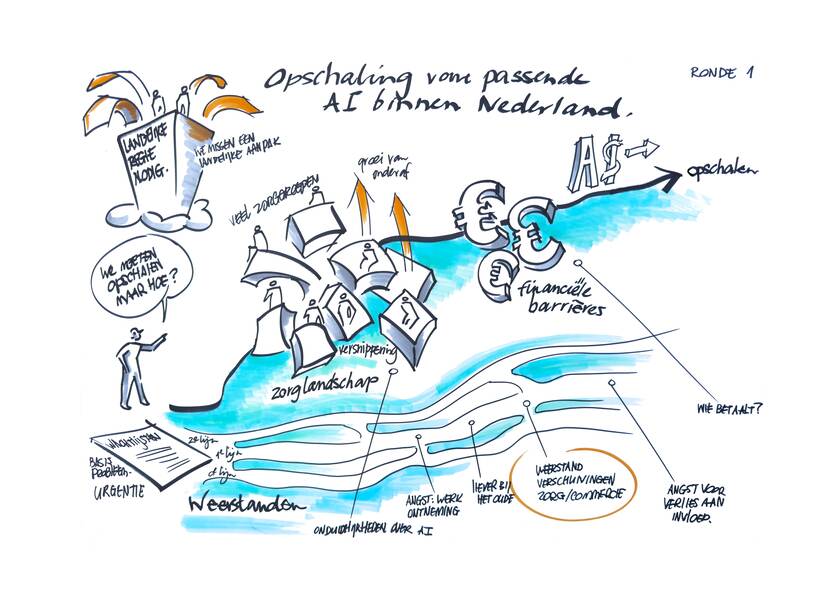 Opschaling van passende
AI binnen Nederland.
RONDE 1
LANDELIJKE
REGIE
NODIG.
WE MISSEN EEN
LANDELIJKE AANPAK
groei van
onderaf
AI
opschalen
VEEL ZORGGROEPEN
WE MOETEN
OPSCHALEN
MAAR HOE?
€
€
€
financiële
barrières
versnippering
zorglandschap
WIE BETAALT?
WACHTLIJSTEN
BASIS
PROBLEEM
URGENTIE
2e lijn
1e lijn
0e lijn
Weerstanden
ONDUIDELIJKHEDEN OVER AI
ANGST: WERK
ONTNEMING
liever bij
HET OUDE
WEERSTAND
VERSCHUIVINGEN
ZORG/COMMERCIE
ANGST VOOR
VERLIES AAN
INVLOED.